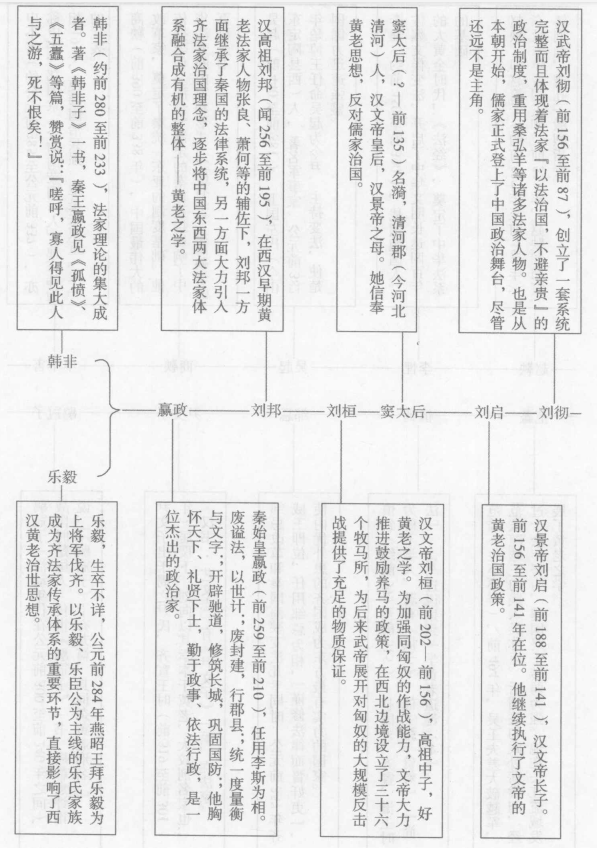 韩非（约前280至前233），法家理论的集大成
者。著《韩非子》一书，秦王嬴政见《孤愤》、
《五蠹》等篇，赞赏说：『嗟呼，寡人得见此人
与之游，死不恨矣！』
汉高祖刘邦（闻256至前195），在西汉早期黄
老法家人物张良、萧何等的辅佐下，刘邦一方
面继承了秦国的法律系统，另一方面大力引入
齐法家治国理念，逐步将中国东西两大法家体
系融合成有机的整体——黄老之学。
窦太后（？—前135）名漪，清河郡（今河北
清河）人，汉文帝皇后，汉景帝之母。她信奉
黄老思想，反对儒家治国。
汉武帝刘彻（前156至前87），创立了一套系统
完整而且体现着法家『以法治国，不避亲贵』的
政治制度，重用桑弘羊等诸多法家人物。也是从
本朝开始，儒家正式登上了中国政治舞台，尽管
还远不是主角。
韩非
乐毅
嬴政
刘邦
刘桓
窦太后
刘启
刘彻
乐毅，生卒不详，公元前284年燕昭王拜乐毅为
上将军伐齐。以乐毅、乐臣公为主线的乐氏家族
成为齐法家传承体系的重要环节，直接影响了西
汉黄老治世思想。
秦始皇嬴政（前259至前210），任用李斯为相。
废谥法，以世计；废封建，行郡县；统一度量衡
与文字；开辟驰道，修筑长城，巩固国防；他胸
怀天下、礼贤下士，勤于政事、依法行政，是一
位杰出的政治家。
汉文帝刘桓（前202—前156），高祖中子，好
黄老之学。为加强同匈奴的作战能力，文帝大力
推进鼓励养马的政策，在西北边境设立了三十六
个牧马所，为后来武帝展开对匈奴的大规模反击
战提供了充足的物质保证。
汉景帝刘启（前188至前141），汉文帝长子。
前156至前141年在位。他继续执行了文帝的
黄老治国政策。